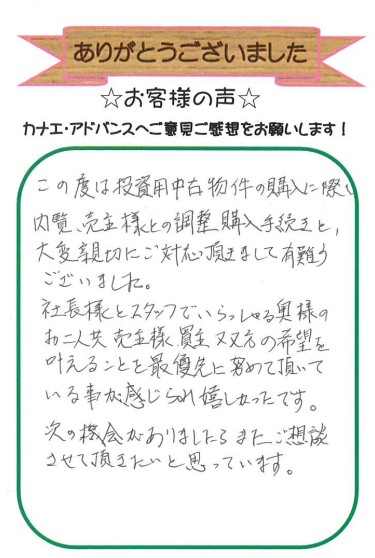 ありがとうございました
☆お客様の声☆
カナエ・アドバンスへご意見ご感想をお願いします！
この度は投資用中古物件の購入に際し
内覧、売主様との調整、購入手続きと、
大変親切にご対応頂きまして有難う
ございました。
社長様とスタッフでいらっしゃる奥様の
お二人共 売主様、買主 双方の希望を
叶えることを最優先に努めて頂いて
いる事が感じられ嬉しかったです。
次の機会がありましたら またご相談
させて頂きたいと思っています。